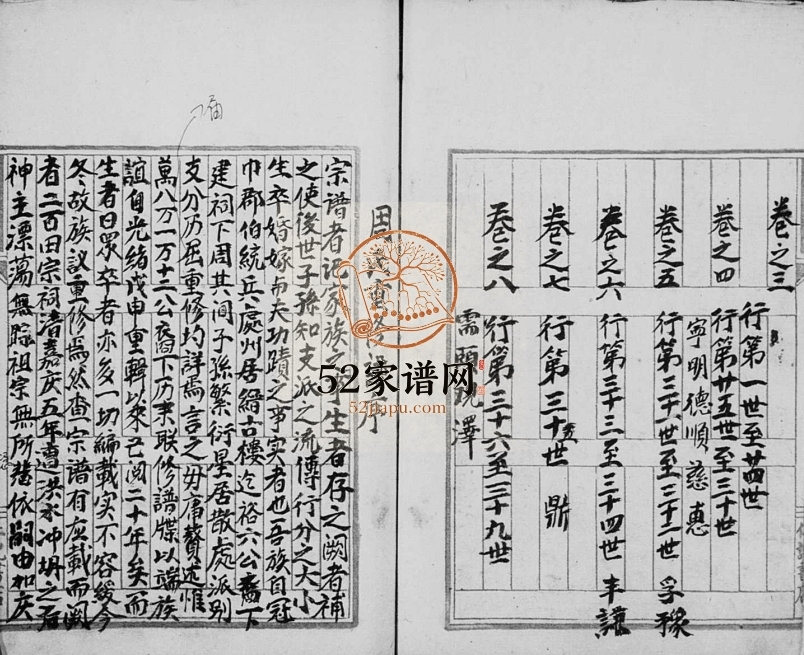 卷之三 行第一世至廿四世
卷之四 行第廿五世至三十世
寧明德順慈惠
卷之五 行第三十一世至三十二世 孚豫
卷之六 行第三十三至三十四世 丰謙
卷之七 行第三十五世 鼎
卷之八 行第三十六至三十九世
需頤 澤
周氏重修 序
宗谱者记家族之 生者存之阙者補
之使後世子孫知支派之流傳行分之大小
生卒婚嫁与夫功蹟之事实者也吾族自冠
巾郡伯統兵處州居縉古樓迄裕六公裔下
建祠下周其间子孫繁衍星居散處派别
支分历届重修均詳焉言之毋庸贅述惟
萬八万一万十三公裔下历来联修譜牒以端族
誼自光緒戊申重輯以來已阅二十年矣而
生者日眾卒者亦多一切編載实不容緩今
冬故族议重修焉然查宗谱有应載而阙
者二百田宗祠清嘉庆五年遭洪水冲坍之后
神主漂荡無踪祖宗無所凭依嗣由加庆
52家谱网
52jiapu.com